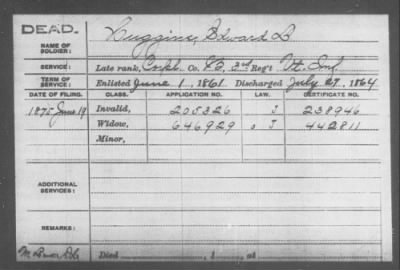 DEAD.
NAME OF SOLDIER: Huggins, Edward D
SERVICE: Late rank, Corpl Co. B, 3rd Reg't Vt. Inf
TERM OF SERVICE: Enlisted June 1, 1861. Discharged July 27, 1864
DATE OF FILING. CLASS. APPLICATION NO. LAW. CERTIFICATE NO.
1875 June 19 Invalid, 205326 J 238946
Widow, 646929 J 442811
Minor,
ADDITIONAL SERVICES:
REMARKS:
Died , 1 , at